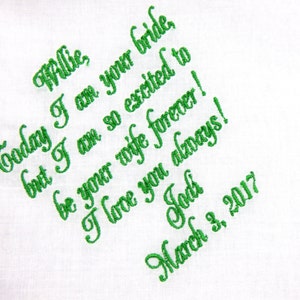 Willie,
Today I am your bride,
but I am so excited to
be your wife forever!
I love you always!
Jodi
March 3, 2017